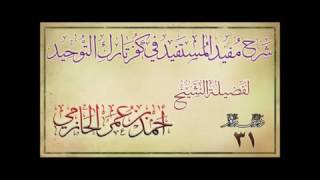 شرح مفيد المستفيد في كفر تارك التوحيد
لفضيلة الشيخ
أحمد بن عمر الحازمي
٣١